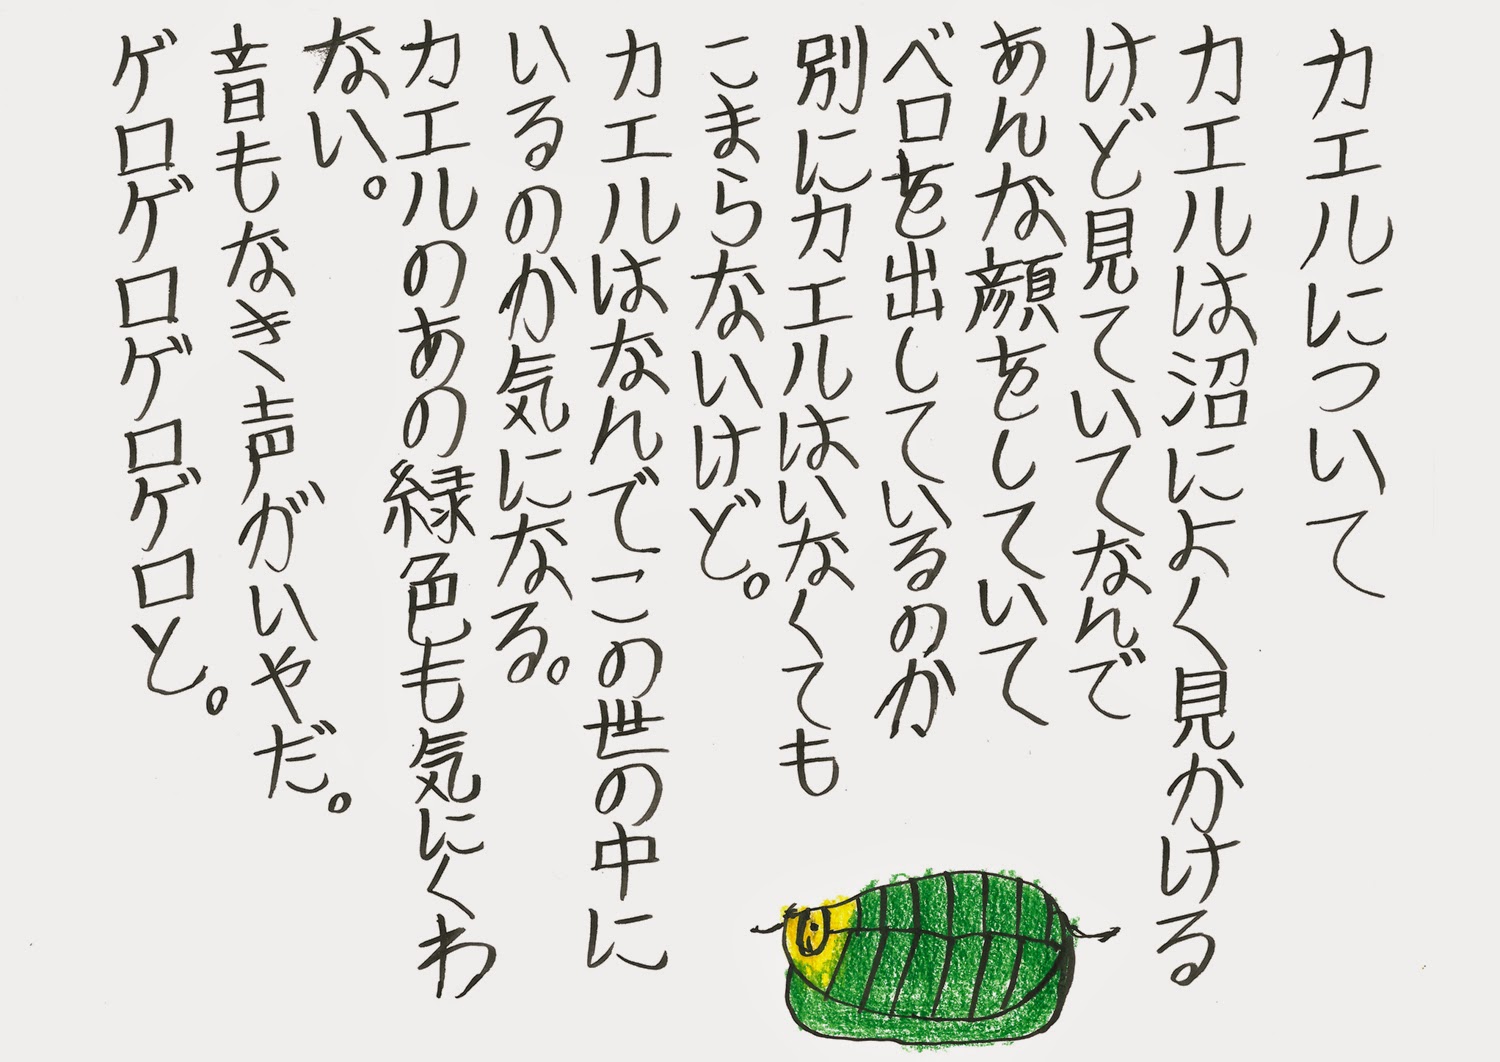 カエルについて
カエルは沼によく見かける
けど見ていてなんで
あんな顔をしていて
ベロを出しているのか
別にカエルはいなくても
こまらないけど。
カエルはなんでこの世の中に
いるのか気になる。
カエルのあの緑色も気にくわ
ない。
音もなき声がいやだ。
ゲロゲロゲロゲロと。